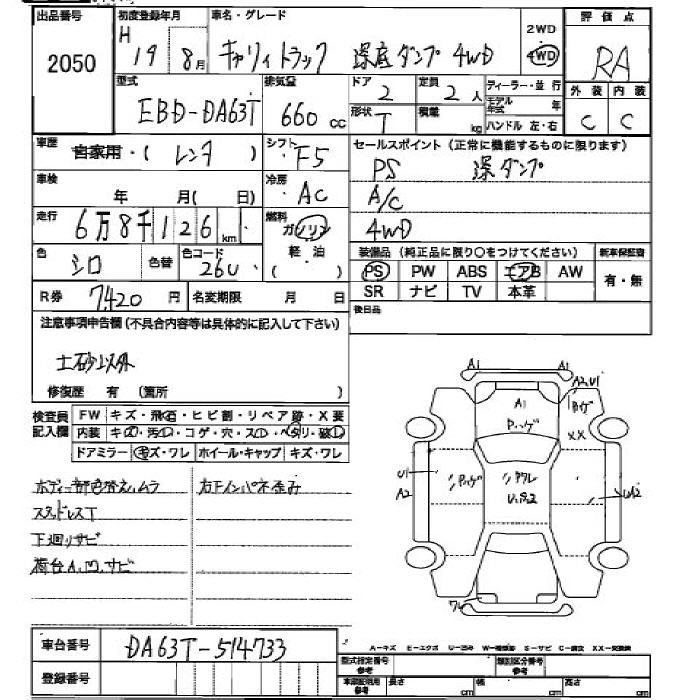 出品番号 初度登録年月 車名・グレード 2WD 評価点
2050 H 19 8月 キャリィトラック 深底ダンプ 4WD 4WD RA
型式 排気量 ドア 定員 ディーラー・並行 外装 内装
EBD-DA63T 660 CC 2 2人 モデル年式 年 C C
形状 T 積載 kg ハンドル 左・右
車歴 自家用・( レンタ ) シフト F5 セールスポイント (正常に機能するものに限ります)
PS 深ダンプ
車検 年 月( 日) 冷房 AC A/C
走行 6万8千126km 燃料 ガソリン 4WD
軽油
( )
色 シロ 色替 色コード 26U 装備品 (純正品に限り○をつけてください) 新車保証書
PS PW ABS エアB AW 有・無
R券 7420円 名変期限 月 日 SR ナビ TV 本革
注意事項申告欄 (不具合内容等は具体的に記入して下さい) 後日品
土砂以外
修復歴 有 (箇所 )
検査員記入欄 FW キズ・飛石・ヒビ割・リペア跡・X要
内装 キズ・汚レ・コゲ・穴・スレ・ヘタリ・破レ
ドアミラー キズ・ワレ ホイール・キャップ キズ・ワレ
A1 A1 A2U1
A1 Pハゲ
XX
U1 A2 Pハゲ
ワレ
ボディー一部色替え、ムラ 右下インパネ歪み
スタッドレスT
下廻りサビ
荷台A,U,サビ
車台番号 DA63T-514733
A-キズ E-エクボ U-凹み W-補修跡 S-サビ C-腐蝕 XX-交換跡
登録番号 型式指定番号 参考 類別区分番号 参考
車庫証明用 参考 長さ cm 幅 cm 高さ cm